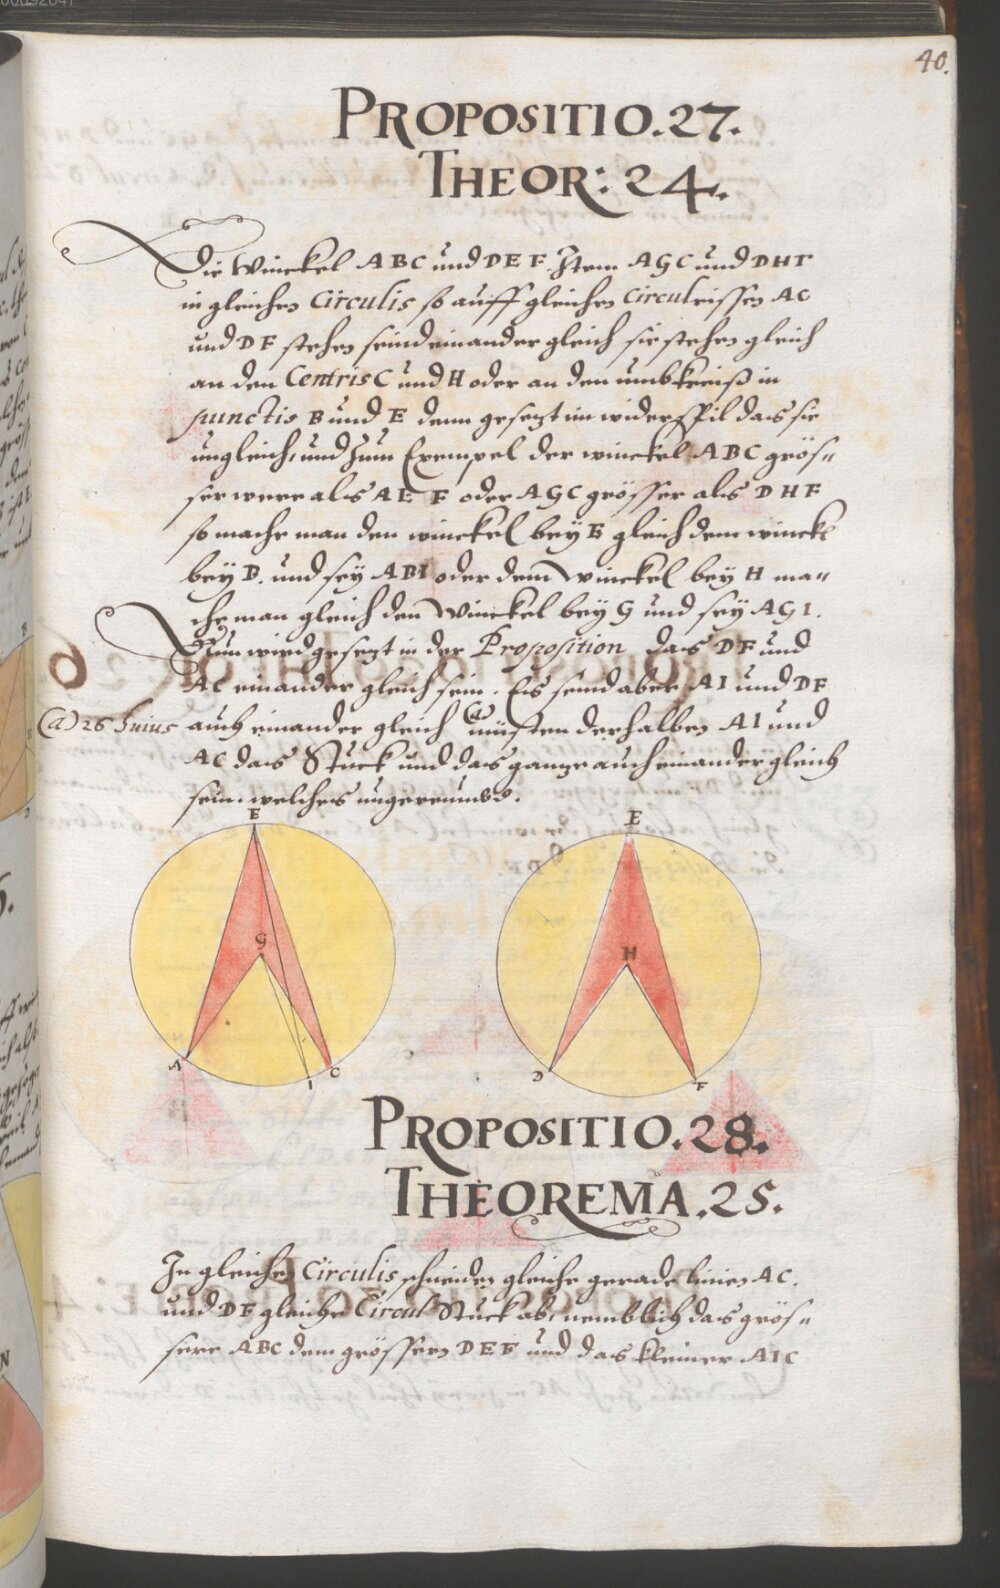 40.
PROPOSITIO.27.
THEOR: 24.
Die Winckel ABC und DEF. Item AGC und DHF
in gleichen Circulis so auff gleichen Circulrissen AC
und DF stehen seind einander gleich sie stehen gleich
an den Centris C und H oder an den umbkreiß in
punctis B und E denn gesezt im widerspil das sie
ungleich, und zum Exempel der winckel ABC grös„
ser were als AE F oder AGC grösser als DHF
so mache man den winckel bey B gleich dem winckel
bey D. und sey ABI oder dem Winckel bey H ma„
che man gleich den Winckel bey G und sey AGI.
Nun wird gesezt in der Proposition das DF und
AC einander gleich sein. Es seind aber AI und DF
(a) 26 huius auch einander gleich (a) müsten derhalben AI und
AC das Stuck und das ganze auch einander gleich
sein. welches ungereumbd.
E
G
A
I
C
E
H
D
F
PROPOSITIO.28.
THEOREMA.25.
In gleichen Circulis schneiden gleiche gerade linien AC.
und DF gleiche Circul Stuck ab, nemblich das grös„
sere ABC dem grössern DEF und das kleiner AIC